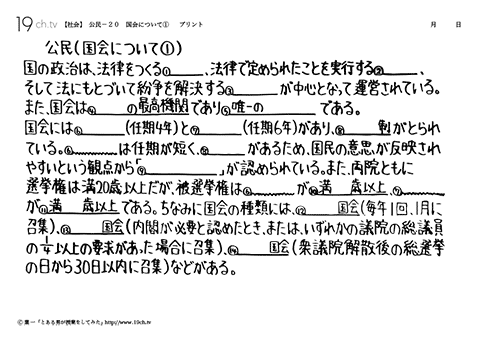 19ch.tv 【社会】 公民－20 国会について① プリント 月 日
公民(国会について①)
国の政治は、法律をつくる①、法律で定められたことを実行する②、
そして法にもとづいて紛争を解決する③が中心となって運営されている。
また、国会は④ の最高機関であり⑤唯一の である。
国会には⑥(任期4年)と⑦(任期6年)があり、⑧ 制がとられ
ている。⑨は任期が短く、⑩があるため、国民の意思が反映され
やすいという観点から「⑪」が認められている。また、両院ともに
選挙権は満20歳以上だが、被選挙権は⑫が⑬満 歳以上、⑭
が⑮満 歳以上である。ちなみに国会の種類には、⑯ 国会(毎年1回、1月に
召集)、⑰ 国会(内閣が必要と認めたとき、または、いずれかの議院の総議員
の1/4以上の要求があった場合に召集)、⑱ 国会(衆議院解散後の総選挙
の日から30日以内に召集)などがある。
Ⓒ 葉一「とある男が授業をしてみた」http://www.19ch.tv